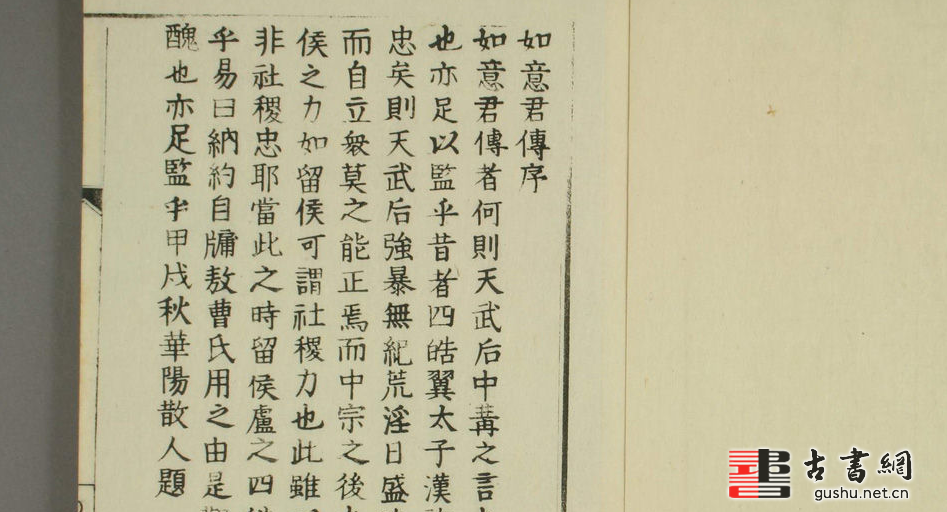 如意君傳序
如意君傳者何則天武后中冓之言
也亦足以監乎昔者四皓翼太子漢
忠矣則天武后強暴無紀荒淫日盛
而自立衆莫之能正焉而中宗之後
侯之力如留侯可謂社稷力也此雖
非社稷忠耶當此之時留侯盧之四
乎易曰納約自牖敖曹氏用之由是
醜也亦足監乎甲戍秋華陽散人題
古書網
gushu.net.cn